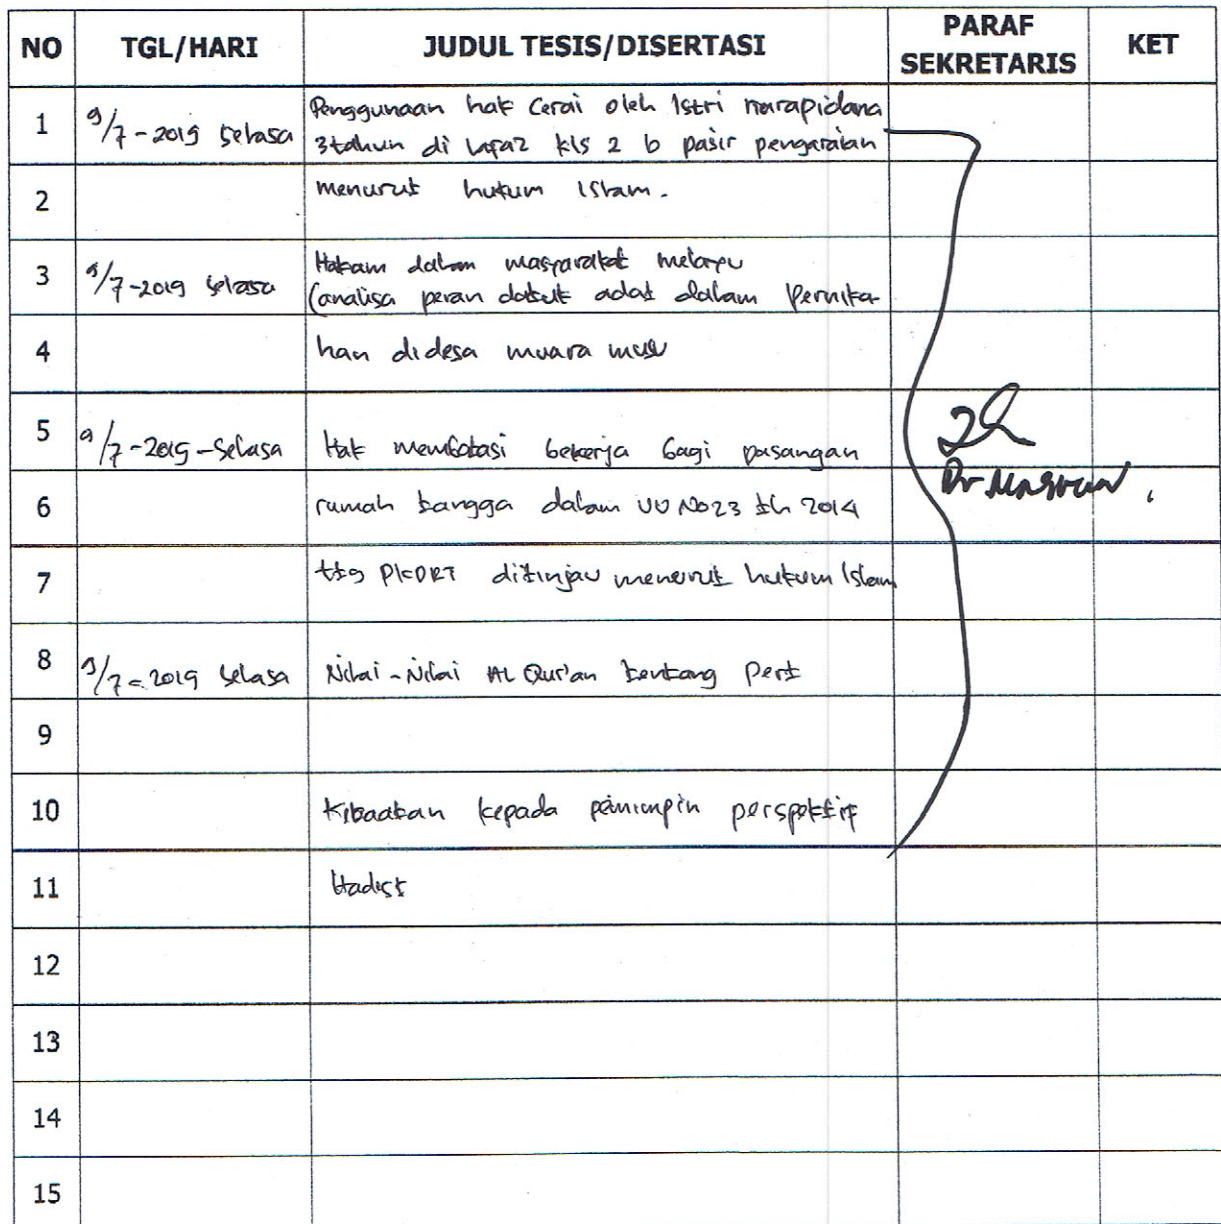 NO TGL/HARI JUDUL TESIS/DISERTASI PARAF SEKRETARIS KET
1 9/7-2019 selasa Penggunaan hak Cerai oleh Istri narapidana
3tahun di Lapaz kls 2 b pasir pengaraian
2 menurut hukum Islam.
3 9/7-2019 selasa Hakam dalam masyarakat melayu
(analisa peran datuk adat dalam Pernika-
4 han didesa muara musu
5 9/7-2019-Selasa Hak membatasi bekerja bagi pasangan
6 rumah tangga dalam UU No23 th 2014
7 ttg PKDRT ditinjau menurut hukum Islam
8 9/7-2019 selasa Nilai-Nilai AL Qur'an tentang Pert
9
10 Ketaatan kepada pemimpin perspektif
11 Hadist
12
13
14
15
Dr